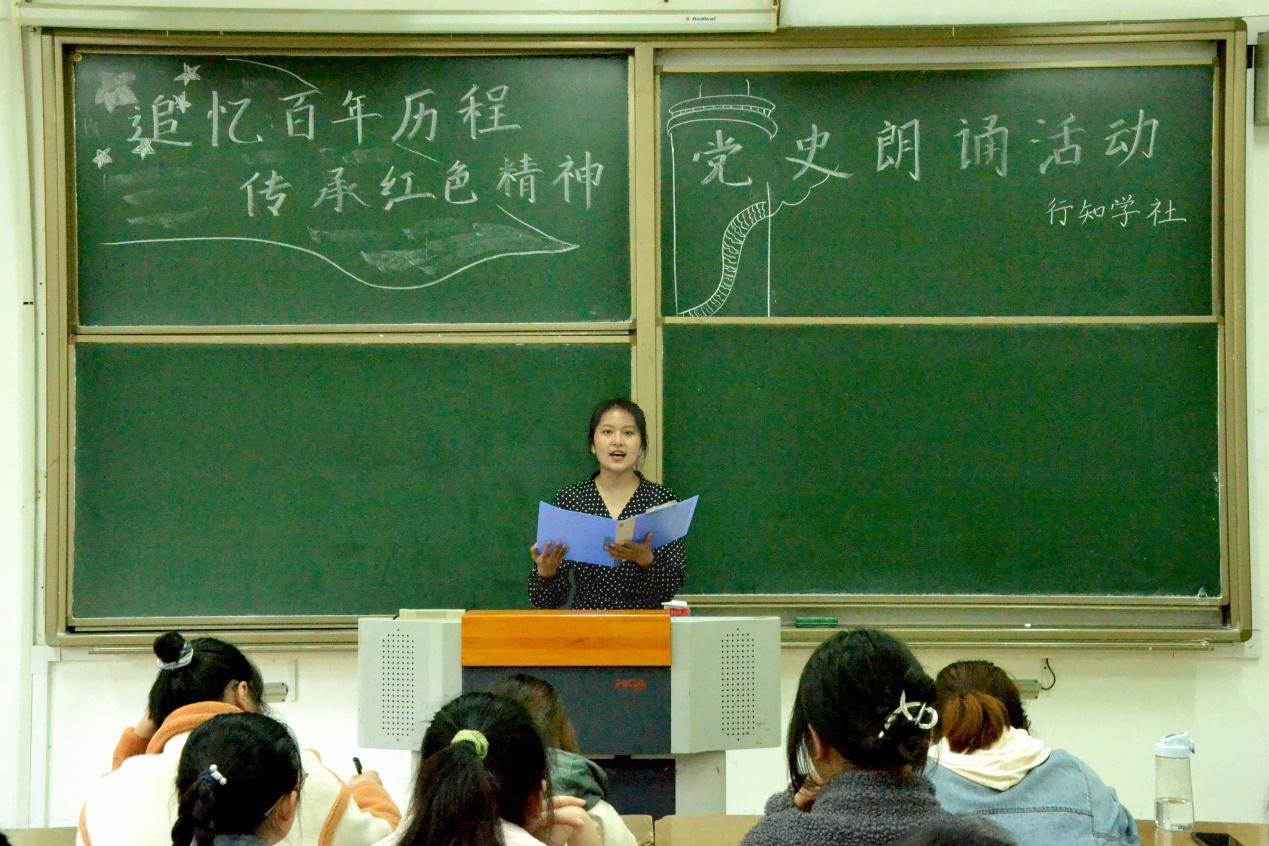 Redleaf
追忆百年历程
传承红色精神
党史朗诵活动
行知学社